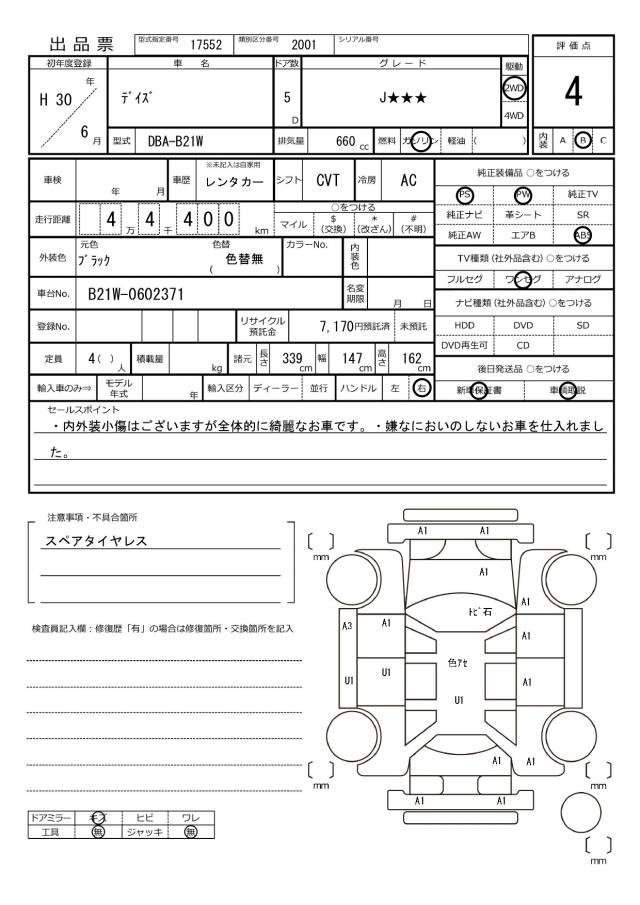 出品票 型式指定番号 17552 類別区分番号 2001 シリアル番号
評価点
初年度登録 車名 ドア数 グレード 駆動
H 30 年 デイズ 5 D J★★★ 2WD 4
4WD
6 月 型式 DBA-B21W 排気量 660 cc 燃料 ガソリン 軽油 ( ) 内装 A B C
車検 年 月 車歴 ※未記入は自家用 レンタカー シフト CVT 冷房 AC
純正装備品 ○をつける
PS PW 純正TV
走行距離 4 万 4 千 4 0 0 km ○をつける
マイル $ (交換) * (改ざん) # (不明)
純正ナビ 革シート SR
純正AW エアB ABS
外装色 元色 ブラック 色替 ( 色替無 ) カラーNo. 内装色
TV種類 (社外品含む) ○をつける
フルセグ ワンセグ アナログ
車台No. B21W-0602371 名変期限 月 日
ナビ種類 (社外品含む) ○をつける
登録No. リサイクル預託金 7,170円預託済 未預託
HDD DVD SD
DVD再生可 CD
定員 4 ( ) 人 積載量 kg 諸元 長さ 339 cm 幅 147 cm 高さ 162 cm
後日発送品 ○をつける
輸入車のみ⇒ モデル年式 年 輸入区分 ディーラー 並行 ハンドル 左 右
新車保証書 車輌取説
セールスポイント
・内外装小傷はございますが全体的に綺麗なお車です。・嫌なにおいのしないお車を仕入れまし
た。
注意事項・不具合箇所
スペアタイヤレス
検査員記入欄：修復歴「有」の場合は修復箇所・交換箇所を記入
A1 A1
mm mm
A1
A1
トビ石
A3 A1 A1
色アセ
U1 U1 A1
U1
A1 A1
mm mm
A1 A1
mm
ドアミラー キズ ヒビ ワレ
工具 無 ジャッキ 無